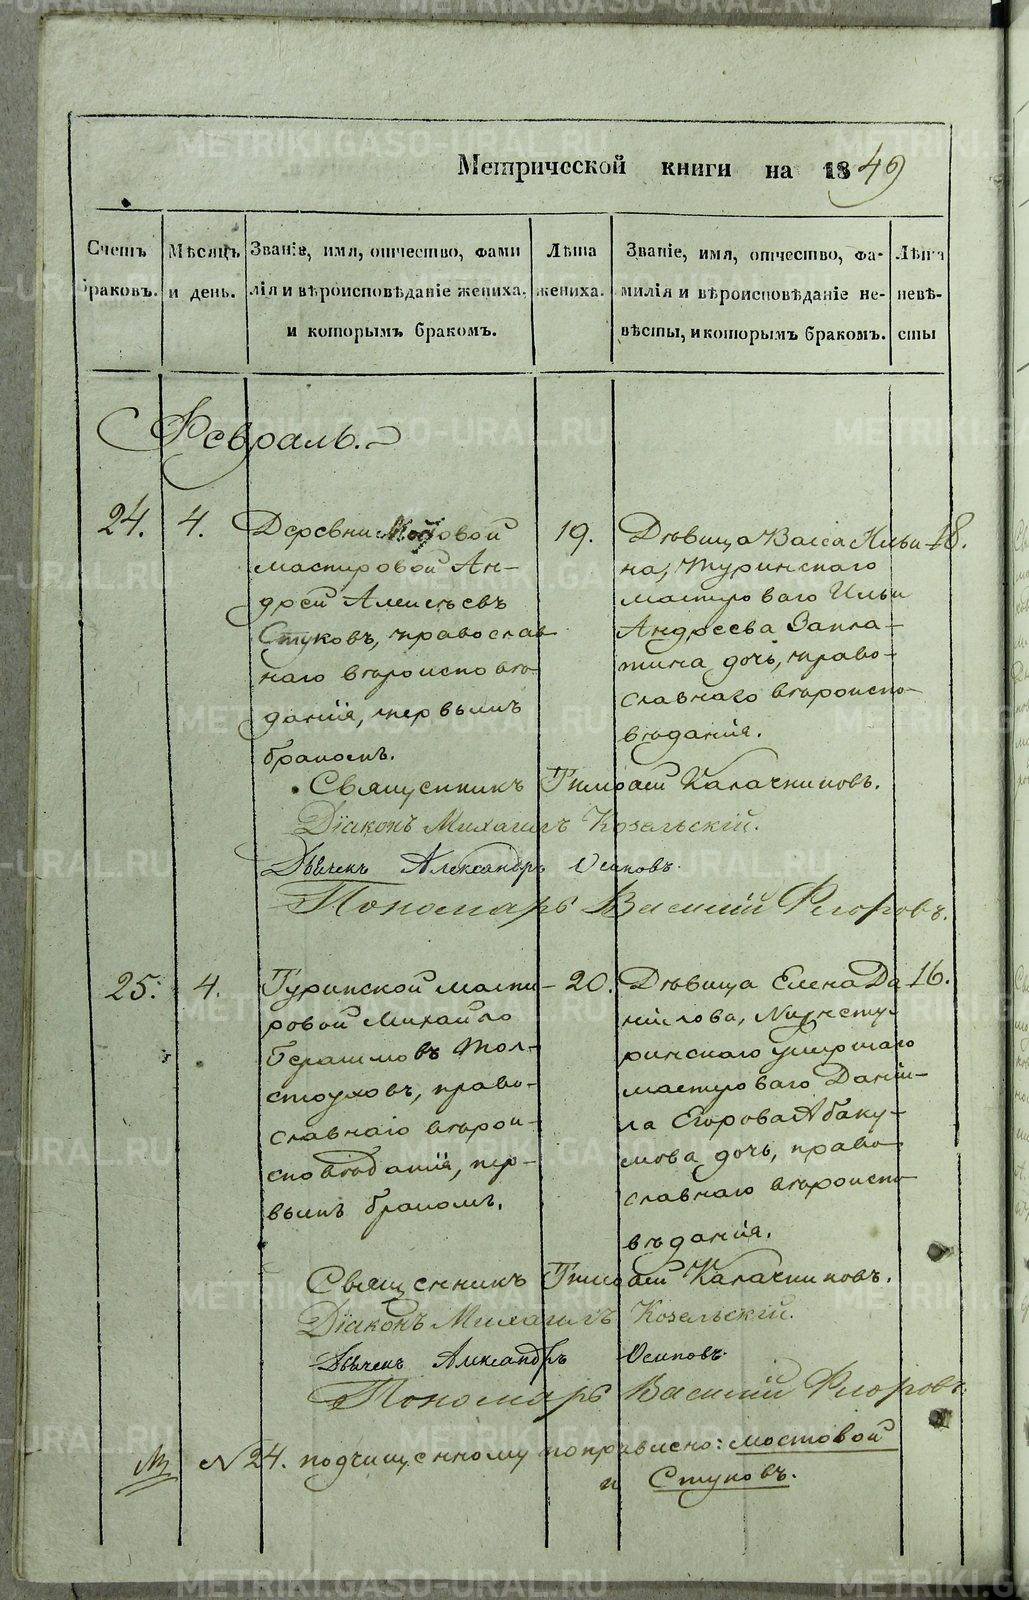 Метрической книги на 1849
Счетъ браковъ.
Мѣсяцъ и день.
Званіе, имя, отчество, фами
лія и вѣроисповѣданіе жениха,
и которымъ бракомъ.
Лѣта
жениха.
Званіе, имя, отчество, фа-
милія и вѣроисповѣданіе не-
вѣсты, и которымъ бракомъ.
Лѣта
невѣ-
сты
Февраль.
24.
4.
Деревни Мостовой
мастеровой Ан-
дрей Алексѣевъ
Стуковъ, православ
наго вѣроисповѣ-
данія, первымъ
бракомъ.
19.
Дѣвица Васса Ильи-
на, Туринскаго
мастероваго Ильи
Андреева Запла-
тина дочь, право-
славнаго вѣроиспо-
вѣданія.
18.
Священникъ Тимофей Калачниковъ.
Діаконъ Михаилъ Козельскій.
Дьячекъ Александръ Осиповъ.
Пономарь Василій Флоровъ.
25.
4.
Туринской масте-
ровой Михайло
Герасимовъ Тол-
стоуховъ, право-
славнаго вѣрои-
сповѣданія, пер-
вымъ бракомъ.
20.
Дѣвица Елена Да
нилова, Нижнету-
ринскаго умершаго
мастероваго Дани-
ла Егорова Абаку-
мова дочь, право
славнаго вѣроиспо-
вѣданія.
16.
Священникъ Тимофей Калачниковъ.
Діаконъ Михаилъ Козельскій.
Дьячекъ Александръ Осиповъ.
Пономарь Василій Флоровъ.
N 24. подчищенному поправлено: мостовой
и Стуковъ.
METRIKI.GASO-URAL.RU